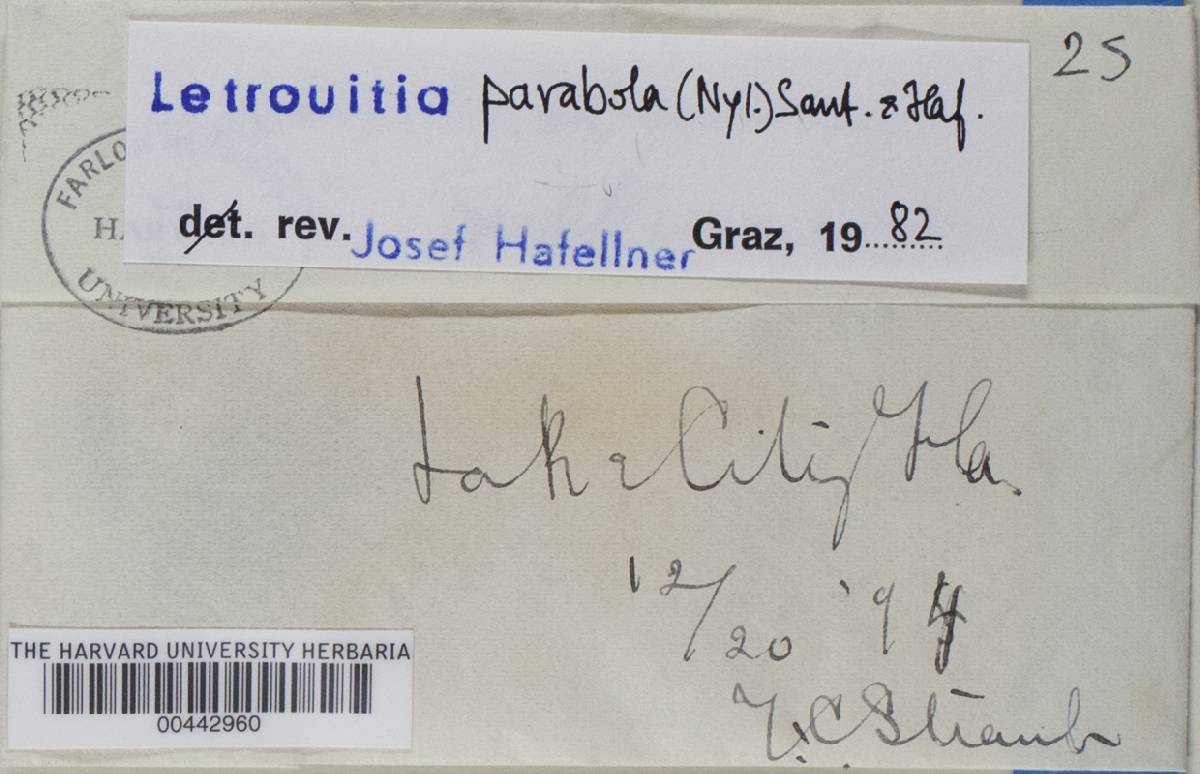 25
Letrouitia parabola (Nyl.) Sant. & Haf.
det. rev. Josef Hafellner Graz, 19 82
FARLO
UNIVERSITY
Lake City Fla.
12/20 '94
C Straub
THE HARVARD UNIVERSITY HERBARIA
00442960